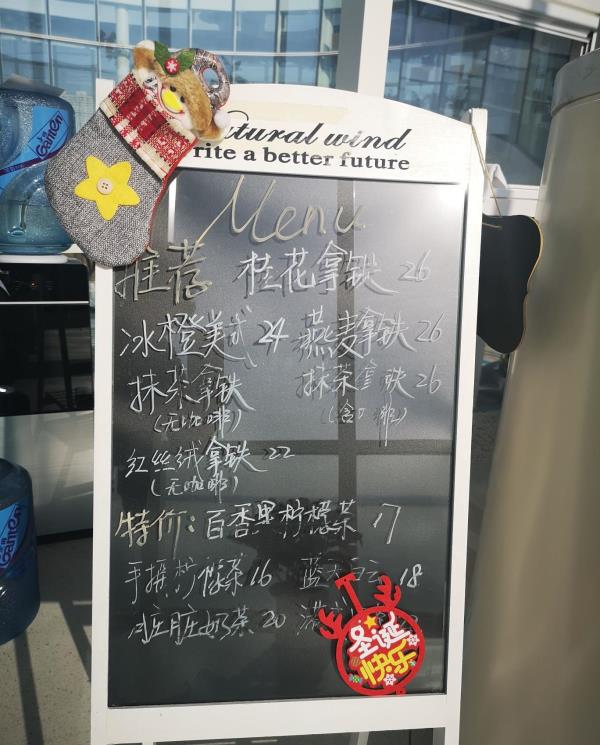 Natural wind
rite a better future
Menu
推荐 桂花拿铁 26
冰橙美式 24 燕麦拿铁 26
抹茶拿铁 抹茶拿铁 26
(无咖啡) (含咖啡)
红丝绒拿铁 22
(无咖啡)
特价: 百香果柠檬茶 17
手打柠檬茶 16 蓝天白云 18
脏脏奶茶 20 满
圣诞
快乐
Gaineri